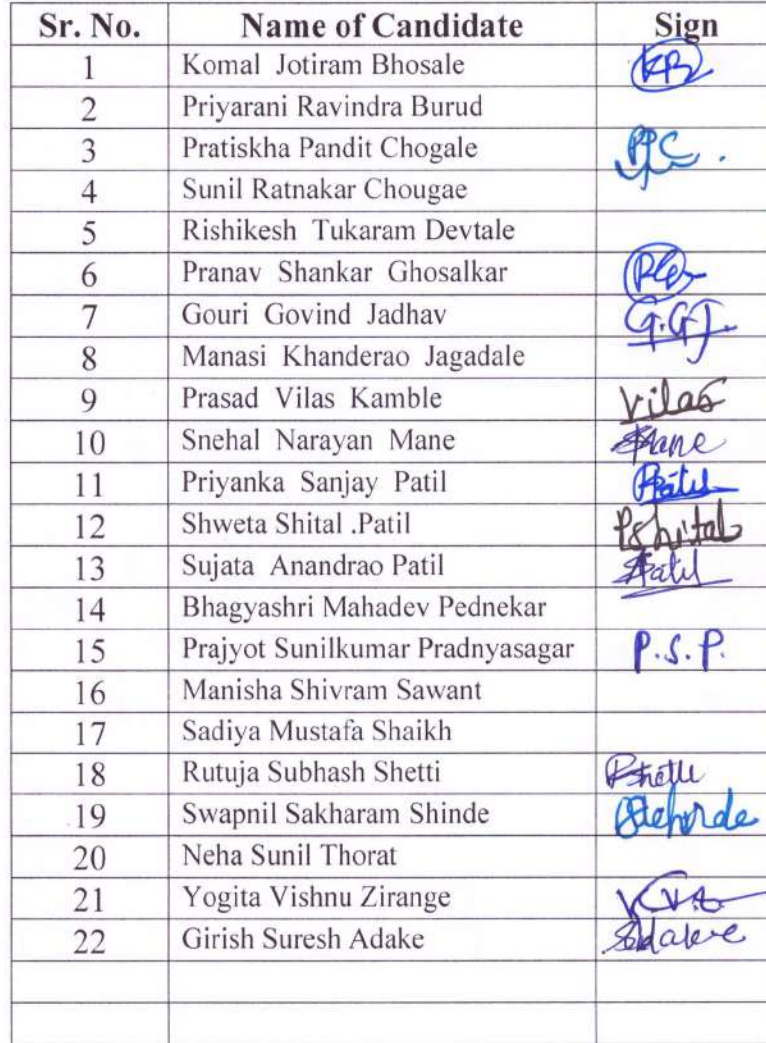 Sr. No. Name of Candidate Sign
1 Komal Jotiram Bhosale KB
2 Priyarani Ravindra Burud
3 Pratiskha Pandit Chogale PPC .
4 Sunil Ratnakar Chougae
5 Rishikesh Tukaram Devtale
6 Pranav Shankar Ghosalkar
7 Gouri Govind Jadhav G.G.J.
8 Manasi Khanderao Jagadale
9 Prasad Vilas Kamble Vilas
10 Snehal Narayan Mane Mane
11 Priyanka Sanjay Patil Patil
12 Shweta Shital .Patil Pshital
13 Sujata Anandrao Patil Patil
14 Bhagyashri Mahadev Pednekar
15 Prajyot Sunilkumar Pradnyasagar P.S.P.
16 Manisha Shivram Sawant
17 Sadiya Mustafa Shaikh
18 Rutuja Subhash Shetti
19 Swapnil Sakharam Shinde
20 Neha Sunil Thorat
21 Yogita Vishnu Zirange
22 Girish Suresh Adake